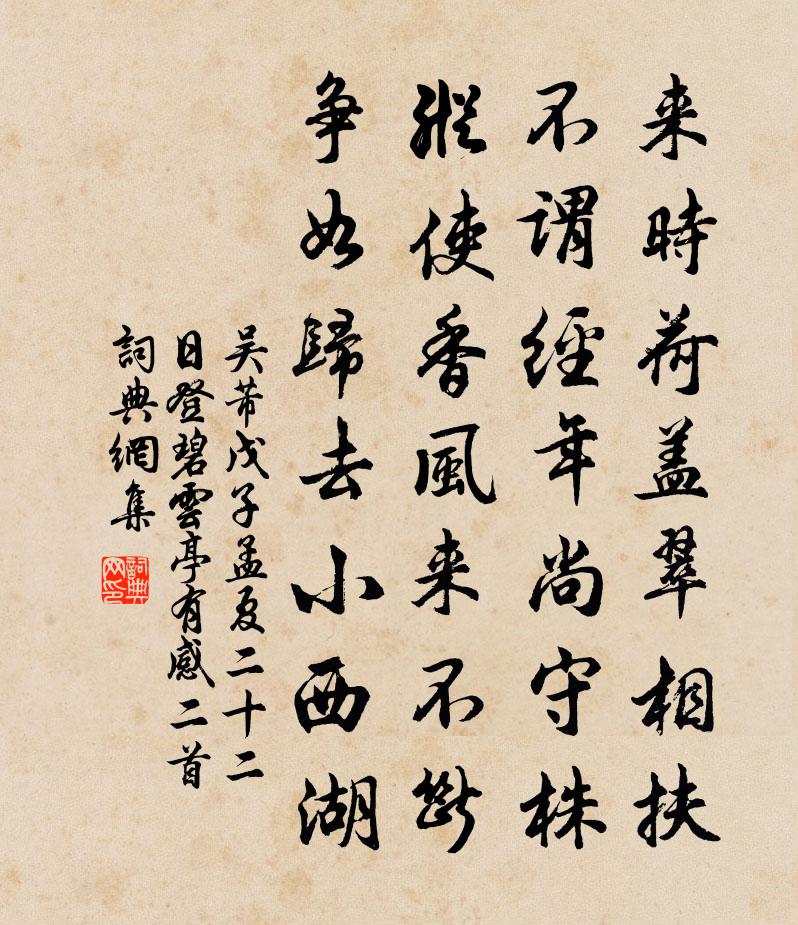 来時荷盖翠相扶
不謂經年尚守株
縱使香風来不斷
争如歸去小西湖
吴芾戊子孟夏二十二
日登碧雲亭有感二首
詞典網集
詞典网印